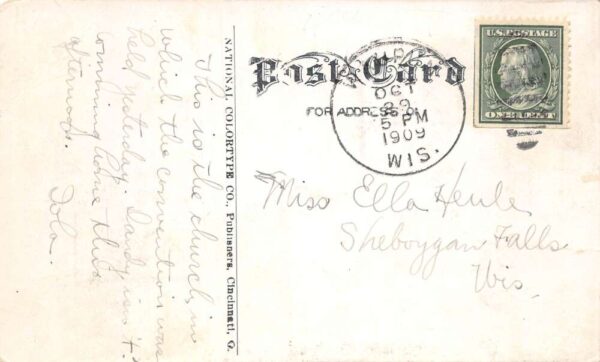 This is the church in
which the convention was
held yesterday.
coming home this
afternoon.
Iola.
NATIONAL COLORTYPE CO., Publishers, Cincinnati, O.
Post Card
FOR ADDRESS
OCT
29
5 PM
1909
WIS.
U.S. POSTAGE
ONE CENT
Miss Ella Henle
Sheboygan Falls
Wis.